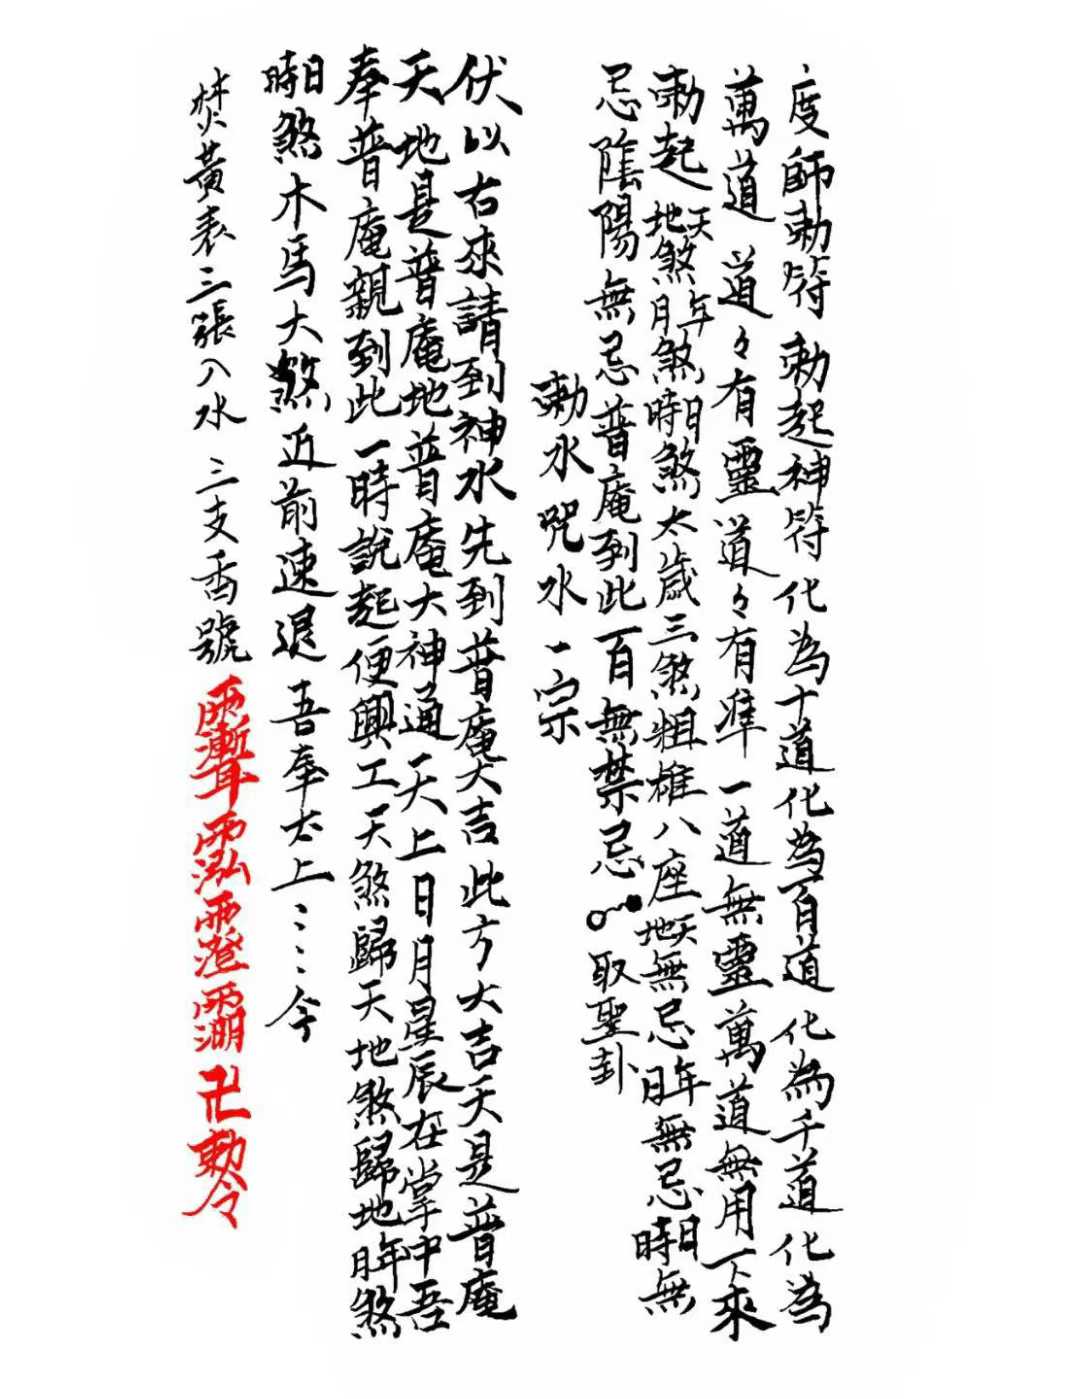 度師勅符 勅起神符 化為十道化為百道 化為千道 化為
萬道 道々有靈道々有準 一道無靈萬道無用下來
勅起天地煞年月煞日時煞太歲三煞粗雄八座天地無忌年月無忌日時無
忌陰陽無忌普庵到此百無禁忌 取聖卦
勅水咒水一宗
伏以右來請到神水先到普庵大吉此方大吉天是普庵
天地是普庵地普庵大神通 天上日月星辰在掌中吾
奉普庵親到此一時說起便興工天煞歸天地煞歸地年月煞
日時煞木馬大煞近前速退 吾奉太上⋮⋮令
焚黃表三張入水 三支香號
卍勅令